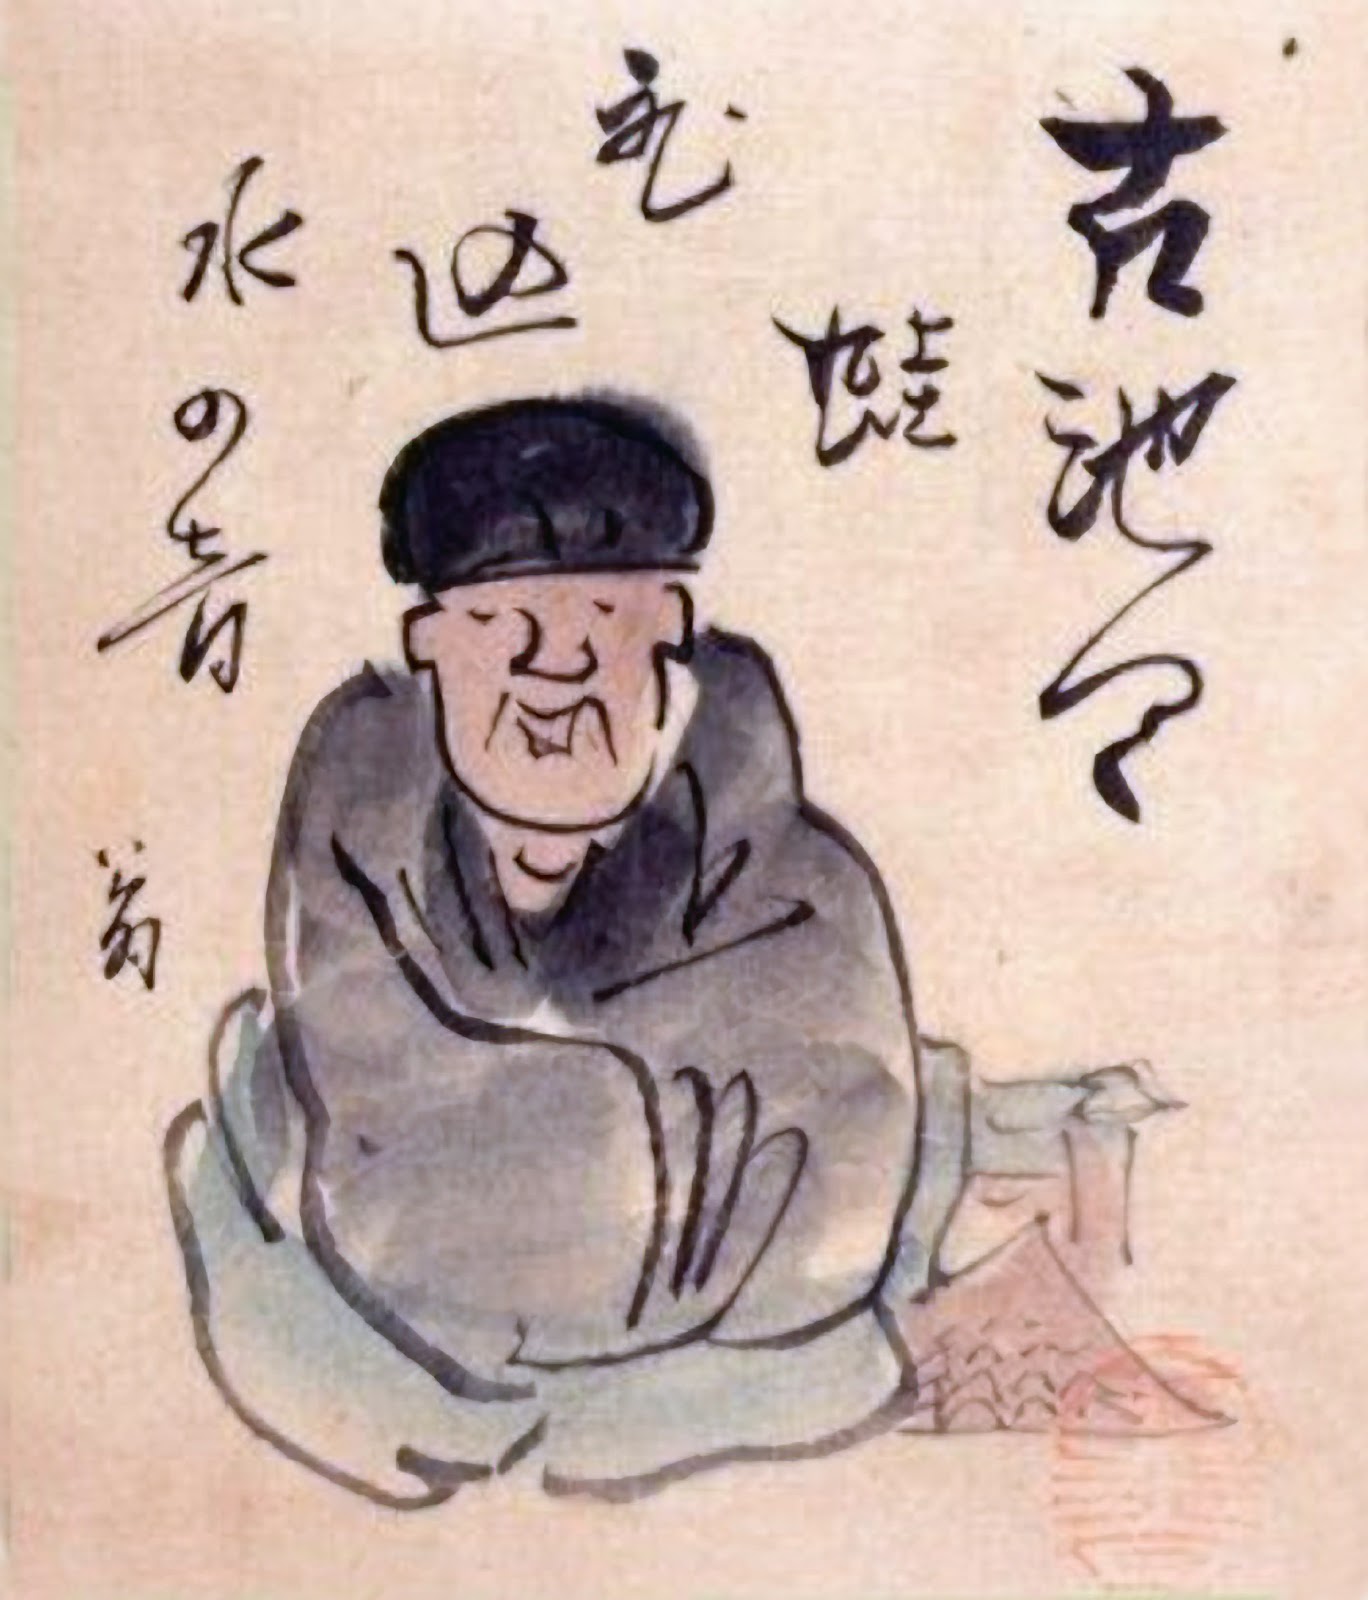 古池や
蛙
飛
込
水の音
翁